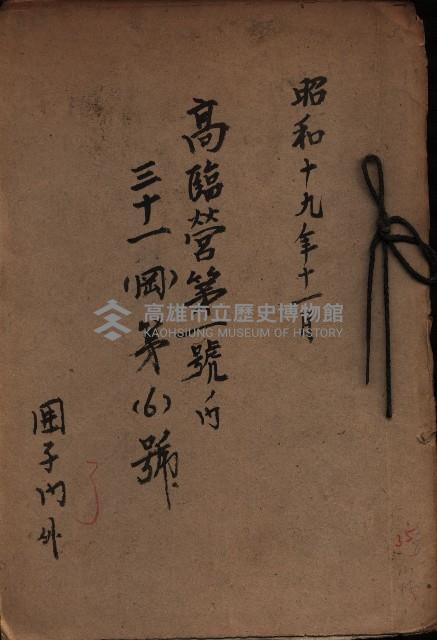 昭和十九年十一月
高臨營第一號ノ内
三十一(岡)第(6)號
囲子内外
了
35
高雄市立歷史博物館
KAOHSIUNG MUSEUM OF HISTORY